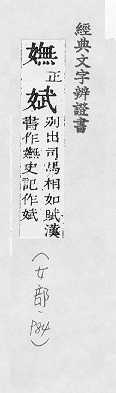 經典文字辨證書
嫵正娬別出司馬相如賦漢
書作嫵史記作娬
(女部,P84)